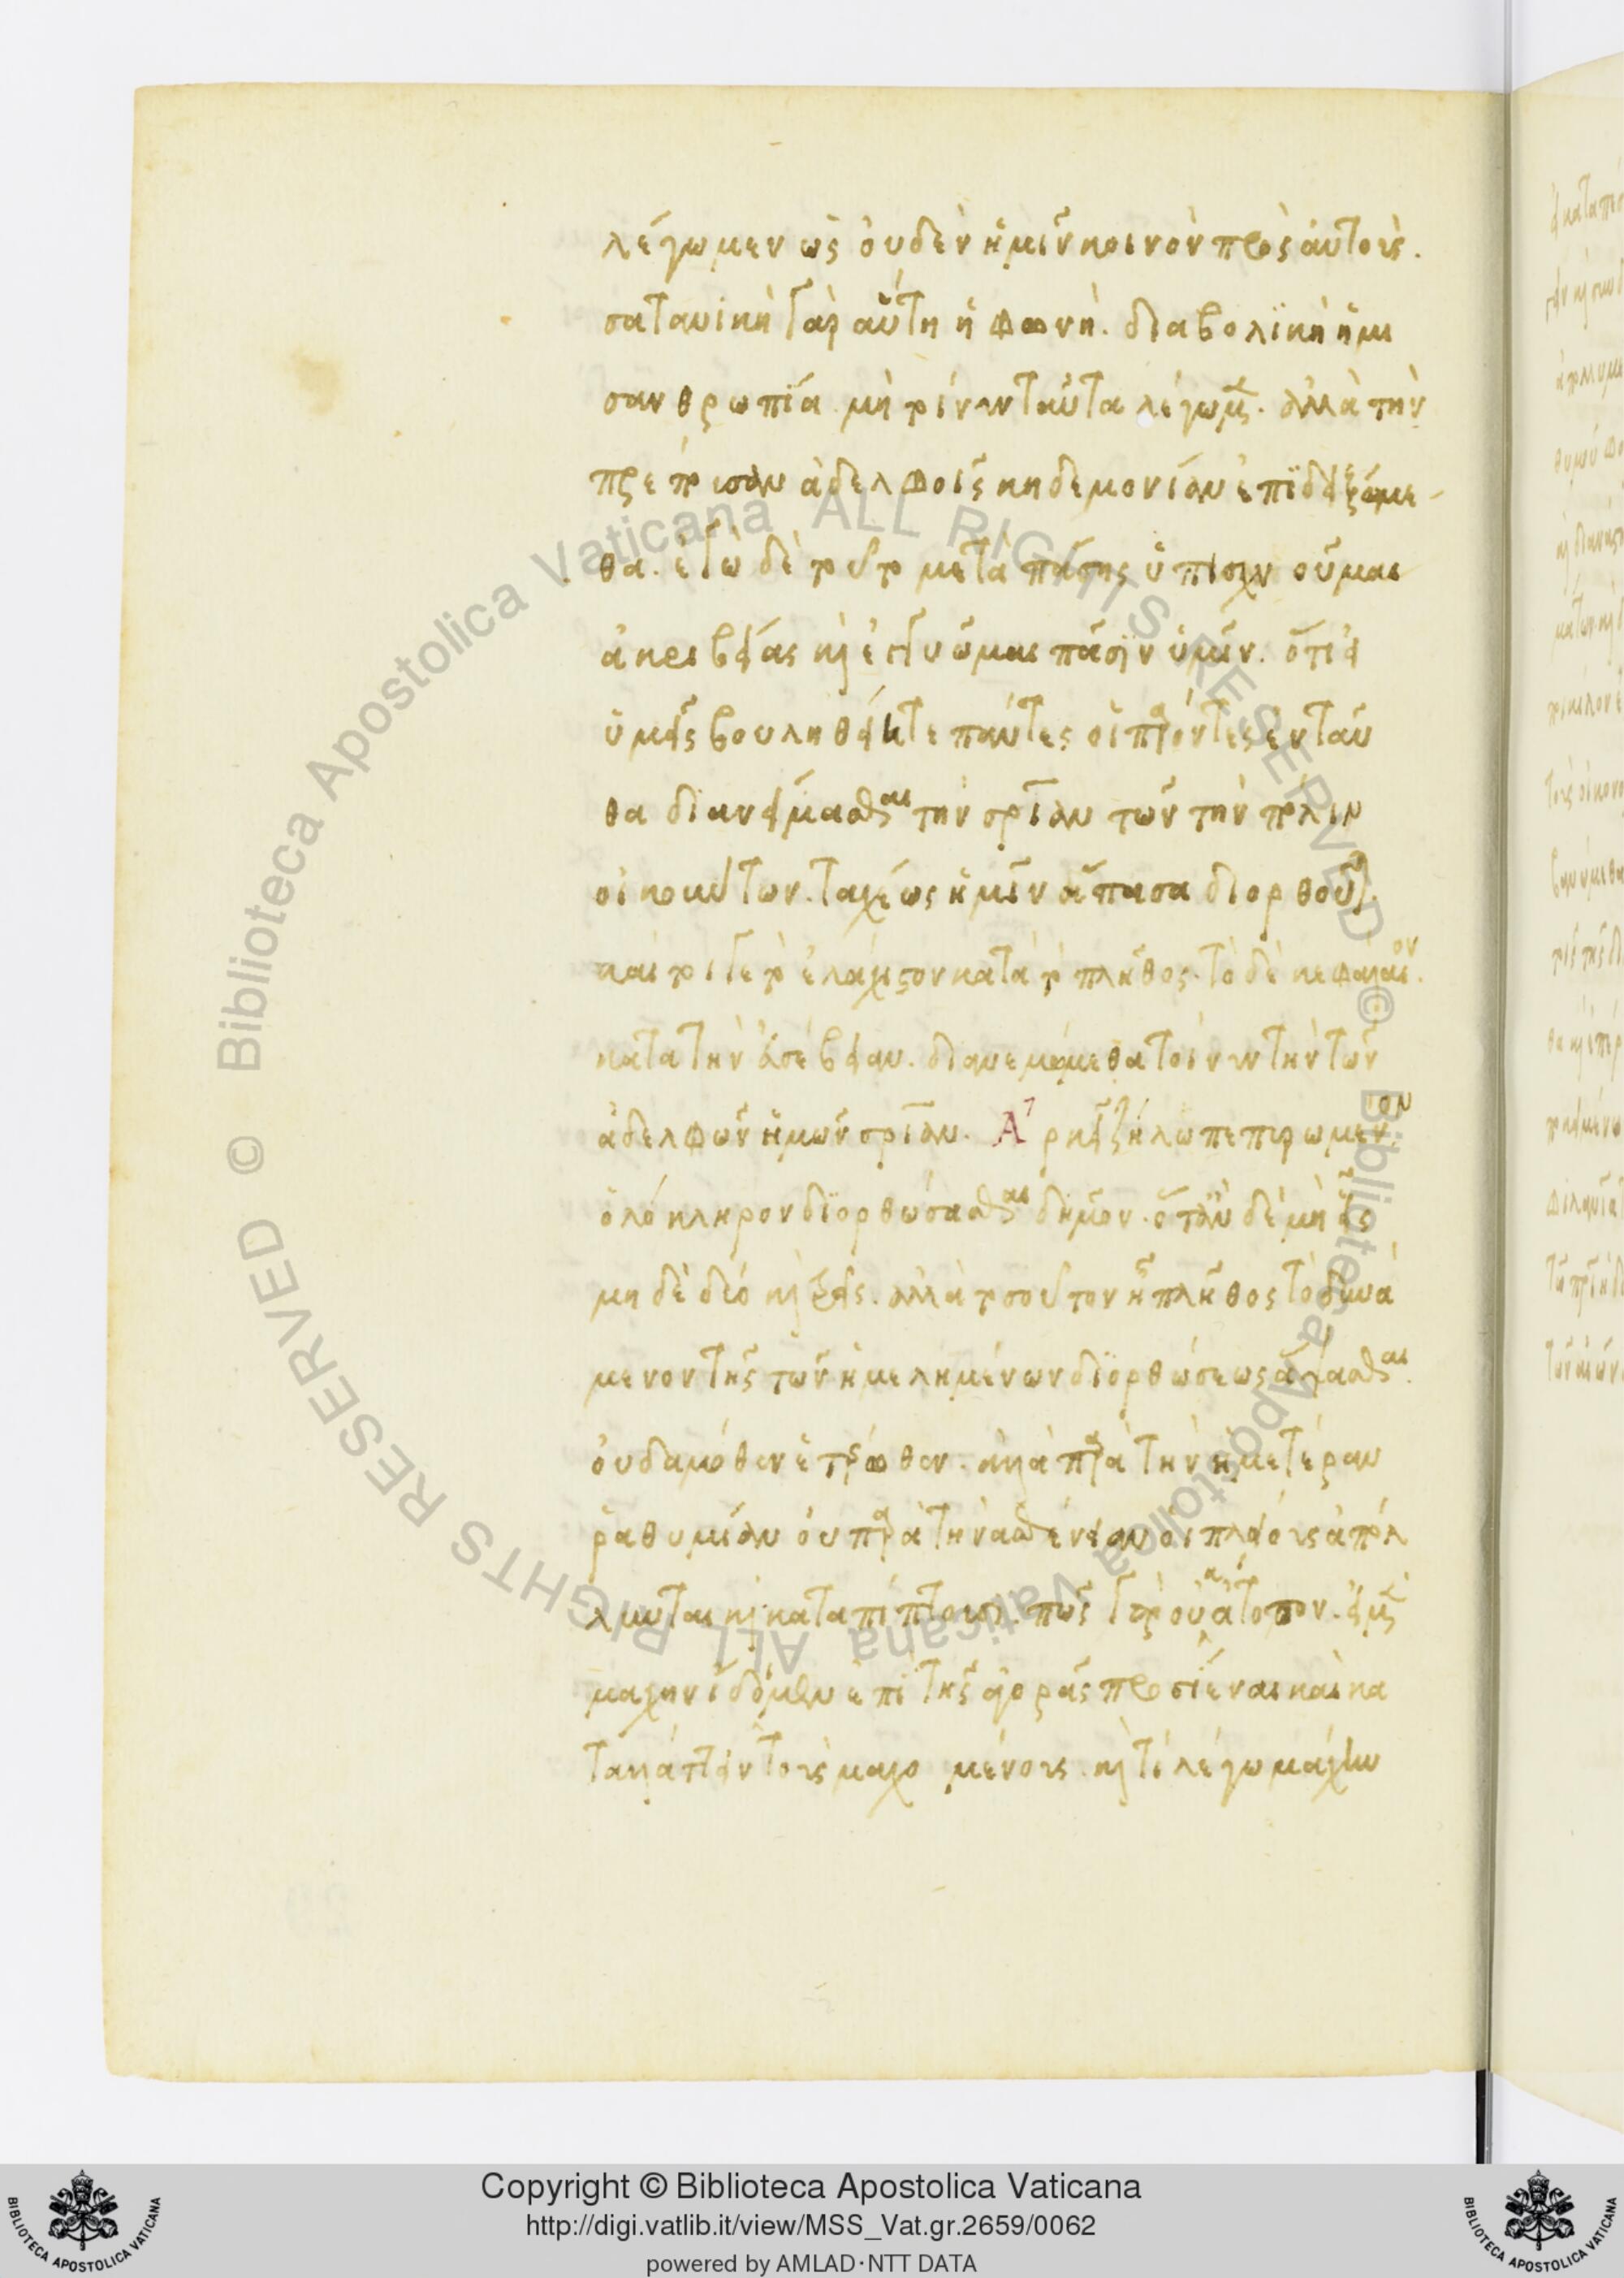 λέγωμεν ὡς οὐδὲν ἡμῖν κοινὸν πρὸς αὐτούς.
σατανικὴ γὰρ αὕτη ἡ φωνὴ. διαβολϊκὴ ἡ μι
σανθρωπία μὴ τοίνυν ταῦτα λέγωμεν. ἀλλὰ τὴν
πρέπουσαν ἀδελφοῖς κηδεμονίαν ἐπϊδειξώμε
θα. ἐγὼ δὲ τοῦτο μετὰ πάσης ὑπισχνοῦμαι
ἀκριβείας καὶ ἐγγυῶμαι πᾶσϊν ὑμῖν. ὅτι εἰ
ὑμεῖς βουληθείητε πάντες οἱ παρόντες ἐνταῦ
θα διανείμασθαι τὴν σωτηρίαν τῶν τὴν πόλιν
οἰκούντων. ταχέως ἡμῖν ἅπασα διορθοῦται.
καίτοιγε τὸ ἐλάχιστον κατὰ τὸ πλῆθος. τὸ δὲ κεφάλαιον.
κατὰ τὴν εὐσέβειαν. διανεμώμεθα τοίνυν τὴν τῶν
ἀδελφῶν ἡμῶν σωτηρίαν. Ἀρκεῖ ζήλω πεπυρωμένον
ὁλόκληρον διορθώσασθαι δῆμον. ὅταν δὲ μὴ εἷς
μηδὲ δύο καὶ τρεῖς. ἀλλὰ τοσοῦτον ἦ πλῆθος τὸ δυνά
μενον τῆς τῶν ἠμελημένων διορθώσεως ἅψασθαι.
οὐδαμόθεν ἑτέρωθεν. ἀλλὰ παρὰ τὴν ἡμετέραν
ῥαθυμίαν οὐ παρὰ τὴν ἀσθένειαν οἱ πλείους ἀπόλ
λυνται καὶ καταπίπτουσι. πῶς γὰρ οὐκ ἄτοπον. εἰ μὲν
μάχην ἴδοιμεν ἐπὶ τῆς ἀγορᾶς προσϊέναι καὶ κα
ταλλάττειν τοὺς μαχομένους. καὶ τί λέγω μάχην
Copyright © Biblioteca Apostolica Vaticana
http://digi.vatlib.it/view/MSS_Vat.gr.2659/0062
powered by AMLAD·NTT DATA